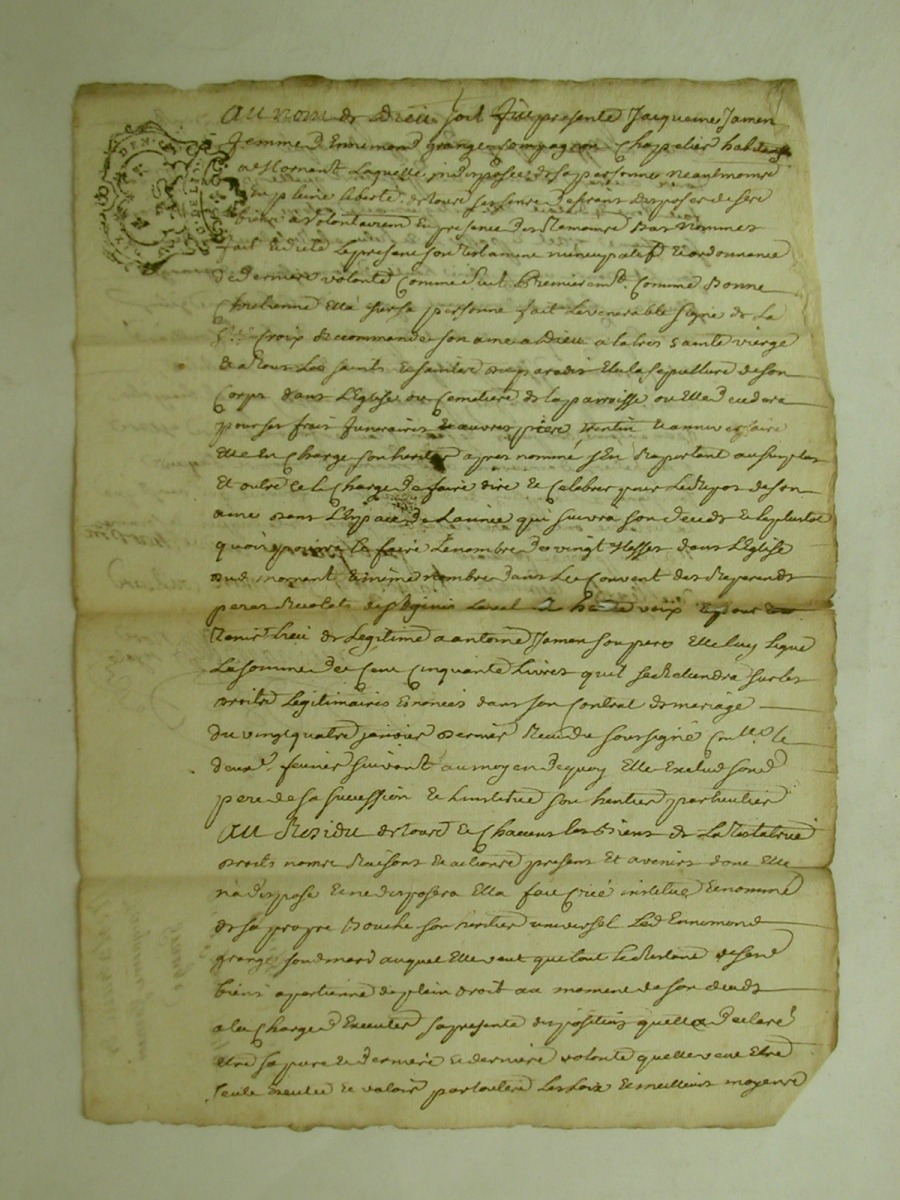 au nom de Dieu soit fut presente Jacqueme Jamen
femme d'Ennemond grange Compagnon Chapelier habitante
a Mornant Laquelle indisposee de sa personne neantmoins
en pleine liberte de tous ses sens desirant disposer de ses
biens a volontairem en presence des temoins bas nommes
fait et dicte le present son testament nuncupatif et ordonnance
de derniere volonté comme suit Premieremt. Comme Bonne
Chretienne Elle a sur sa personne fait le venerable signe de La
Ste croix recommande son ame a Dieu a la tres sainte vierge
et a tous Les saints et saintes du paradis Elit la sepulture de son
Corps dans L'Eglise ou Cemetiere de la parroisse ou Elle decedera
pour ses frais funeraires et œuvres pies Elle
En Charge son heritier apres nommé s'En Raportant au surplus
Et outre ce le Charge de faire dire et Celebrer pour Le Repos de son
ame dans L'Espace de L'année qui suivra son deceds et le plustot
que pourra se faire Le nombre de vingt Messes dans L'Eglise
dud mornant et même nombre dans Le Couvent des Reverends
peres Recolets de st Genis Laval a voix et pour
Tenir Lieu de Legitime a antoine Jamen son pere Elle luy Legue
La somme de Cent Cinquante Livres qu'il se Retiendra sur les
droits Legitimaires Enoncés dans son Contrat de mariage
du vingt quatre janvier dernier Receu du soursigné Con.lé le
deux fevrier suivant au moyen de quoy Elle Exclud son d
pere de sa succession et L'institue son heritier particulier
Au Residu de tous et Chacuns les Biens de La Testatrice
droits noms Raisons et actions present Et avenirs dont Elle
n'a dispose et ne disposera Elle a fait Créé institué et nommé
de sa propre Bouche son heritier universel Led Ennemond
grange son d mari auquel Elle veut que tout Le Restant de ses d
biens apartienne de plein droit au moment de son deceds
a la Charge d'Executer sa presente disposition qu'elle a Declaré
etre sa pure et derniere et derniere volonté qu'elle veut Etre
seule Executée et valoir par toutes Les Loix et meilleurs moyens